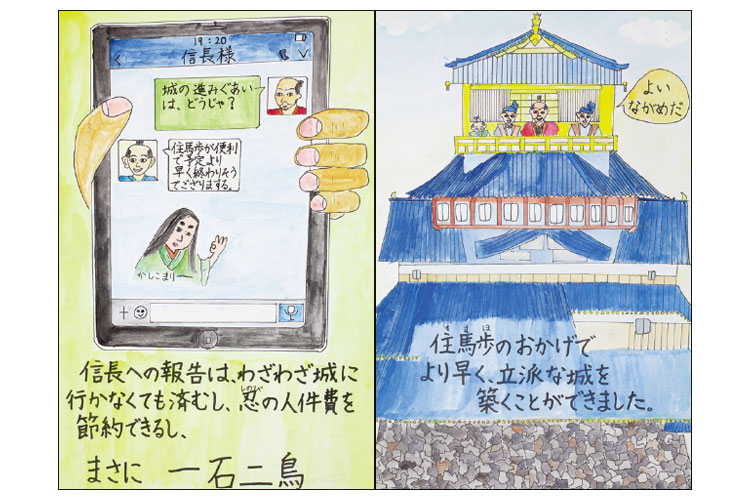 19:20
信長様
城の進みぐあい
は、どうじゃ?
住馬歩が便利
で予定より
早く終わりそう
でござりまする。
かしこまりー
信長への報告は、わざわざ城に
行かなくても済むし、忍の人件費を
しのび
節約できるし、
まさに 一石二鳥
よい
ながめだ
すまほ
住馬歩のおかげで
より早く、立派な城を
築くことができました。